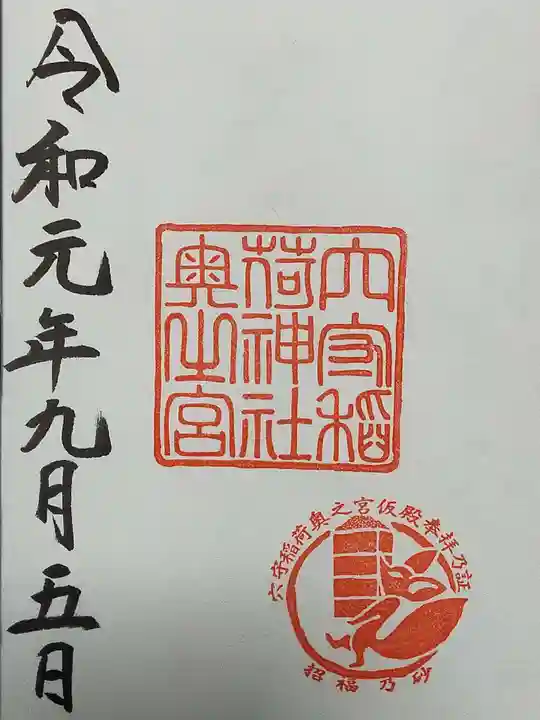 穴守稲
荷神社
奥之宮
穴守稲荷奥之宮仮殿奉拝乃証
招福乃砂
令和元年九月五日